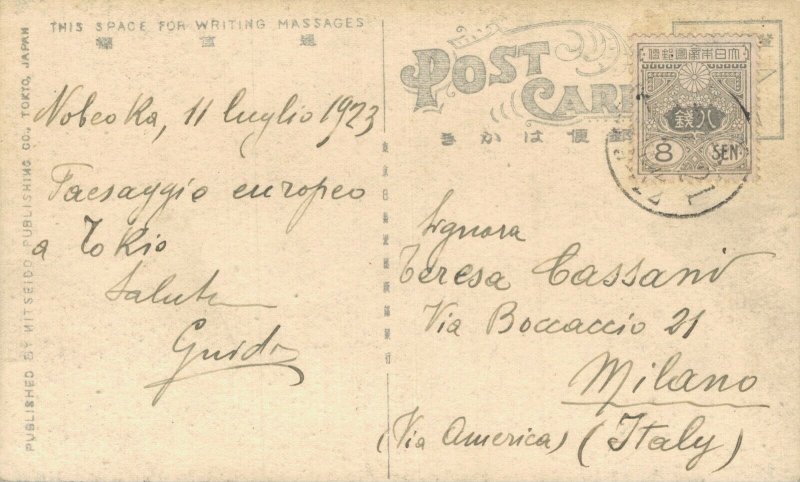 THIS SPACE FOR WRITING MASSAGES
POST CARD
きかは便郵
大日本帝國郵便
八銭
8 SEN
PUBLISHED BY NITSEIDO PUBLISHING CO., TOKYO, JAPAN
Nobeoka, 11 luglio 1923
Paesaggio europeo
a Tokio
Saluti
Guido
Signora
Teresa Cassani
Via Boccaccio 21
Milano
(Via America) (Italy)